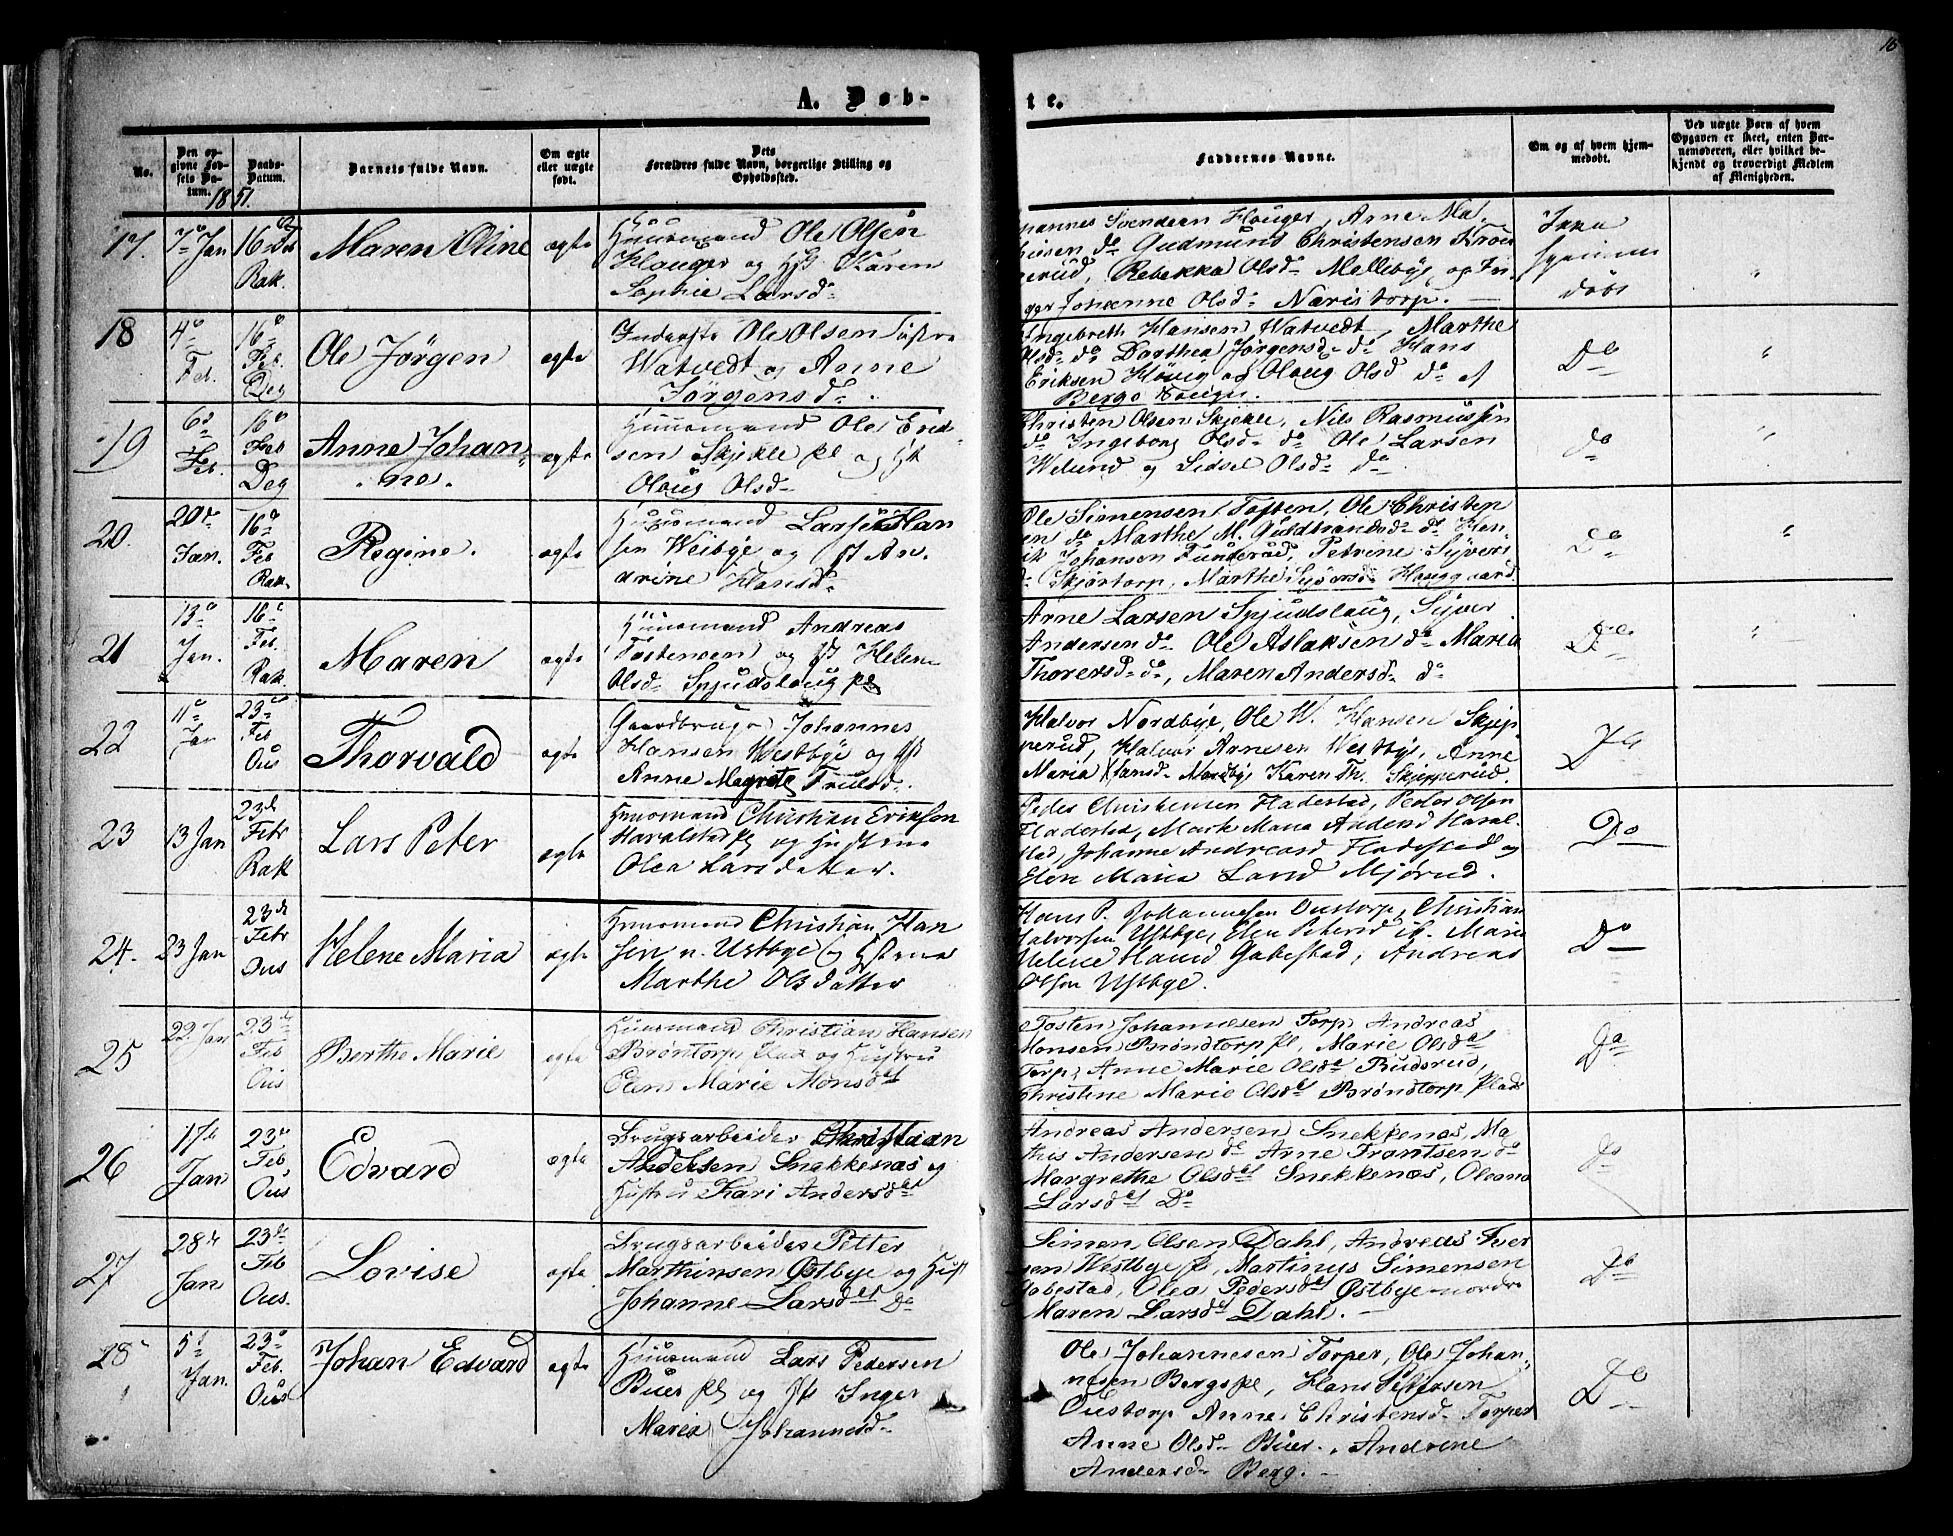 16
A. Døbte.
No.
Den opgivne Fødsels Datum.
Daabs-Datum.
1851.
Barnets fulde Navn.
Om ægte eller uægte født.
Dets Forældres fulde Navn, borgerlige Stilling og Opholdssted.
Faddernes Navne.
Om og af hvem hjemmedøbt.
Ved uægte Børn af hvem Opgaven er skeet, enten Barnemoderen, eller hvilket bekjendt og troværdigt Medlem af Menigheden.
17. 7de Jan 16de Feb Rak. Maren Oline ægte
Huusmand Ole Olsen
Houger og Hst Karen
Sophie Larsd
Svendsen Houger, Arne Ma
do Gudmund Christensen
Rebekka Olsd Mellebye, og In
ger Johanne Olsd Næristorp.
hjemme
døbt
18 4de Feb. 16de Feb. Deg Ole Jørgen ægte
Inderste Ole Olsen
Watvedt og Anne
Jørgensd.
Ingebreth Hansen Watvedt, Marthe
Olsd do Dorthea Jørgensd do Hans
Eriksen og Oloug Olsd do af
Berge
Do
19 6d Feb. 16de Feb Deg Anne Johan
ne. ægte
Huusmand Ole
sen Skjekle pl og Hst
Oloug Olsd
Christen Olsen Skjekle, Nils Rasmussen
do Ingeborg Olsd do Ole Larsen
Welund og Sidsel Olsd do
do
20. 20de Jan. 16de Feb Rak. Regine. ægte
Huusmand Lars Han
sen Weibye og Hst An
drine Hansd
Ole Simensen Toften, Ole Christen
sen do Marthe M. Guldbrandsd do Hen
rik Johansen Funderud, Petrine Syvers
d Skjørtorp, Marthe Syversd Houggaard.
Do
21 13de Jan. 16de Feb. Rak. Maren ægte
Huusmand Andreas
Tostensen og Hst Helene
Olsd Spjudsloug pl
Arne Larsen Spjudsloug, Syver
Andersen do Ole Aslaksen do Maria
Thoresd do, Maren Andersd do
Do
22 11de Jan 23de Feb Ous Thorvald ægte
Gaardbruger Johannes
Hansen Westbye og Hst
Anne Magrete
Halvor Nordbye, Ole W. Hansen Skjep
perud, Halvor Arnesen Westbye, Anne
Maria Hansd Nordbye Karen Th. Skjepperud.
23 13 Jan 23de Febr Rak Lars Peter ægte
Huusmand Christian Eriksen
Haralstad pl og Hustrue
Olea Larsdatter.
Peder Christensen Hadestad, Peder Olsen
Maria Andersd Haral
stad, Johanne Andreasd og
Elen Maria Larsd Mjørud.
Do
24. 23 Jan 23de Febr Ous Helene Maria ægte
Huusmand Christian Han
sen n. Ustbye og Hstrue
Marthe Olsdatter
Hans P. Johannesen Oustorp, Christian
Halvorsen Ustbye, Elen Petersd Maria
Helene Hansd Gabestad, Andreas
Olsen Ustbye.
Do
25 22 Jan 23de Feb Ous Berthe Marie ægte
Huusmand Christian Hansen
Brøntorp plad og Hustru
Elen Marie Monsdt
Tosten Johannesen Torp Andreas
Monsen Brøndtorp pl, Marie Olsdt
Torp, Anne Marie Olsdt Rudsrud,
Christine Marie Olsdt Brøndtorp Plads
Do
26 17de Jan 23de Feb. Ous Edvard ægte
Brugsarbeider Christian
Andersen Snekkenæs og
Hustru Kari Andersdt
Andreas Andersen Snekkenæs, Ma
this Andersen do Arne Frantsen do
Margrethe Olsdt Snekkenæs, Oleana
Larsdt Do
do
27 28de Jan 23de Feb Ous. Lovise ægte
Brugsarbeider Petter
Marthinsen Østbye og Hust
Johanne Larsdt Do
Simen Olsen Dahl, Andreas Iver
sen Westbye pl, Martinus Simensen
Gabestad, Olea Pedersdt Østbye nordre
Maren Larsdt Dahl.
Do
28 5t Jan. 23de Feb. Ous Johan Edvard ægte
Huusmand Lars Pedersen
Buer pl og Hst Inger
Maria Johannesd
Ole Johannesen Torper, Ole Johan
nesen Bergspl, Hans Pettersen
Oustorp Anne Christensd Torper
Anne Olsd Buer, Andrine
Andersd Berg.
Do